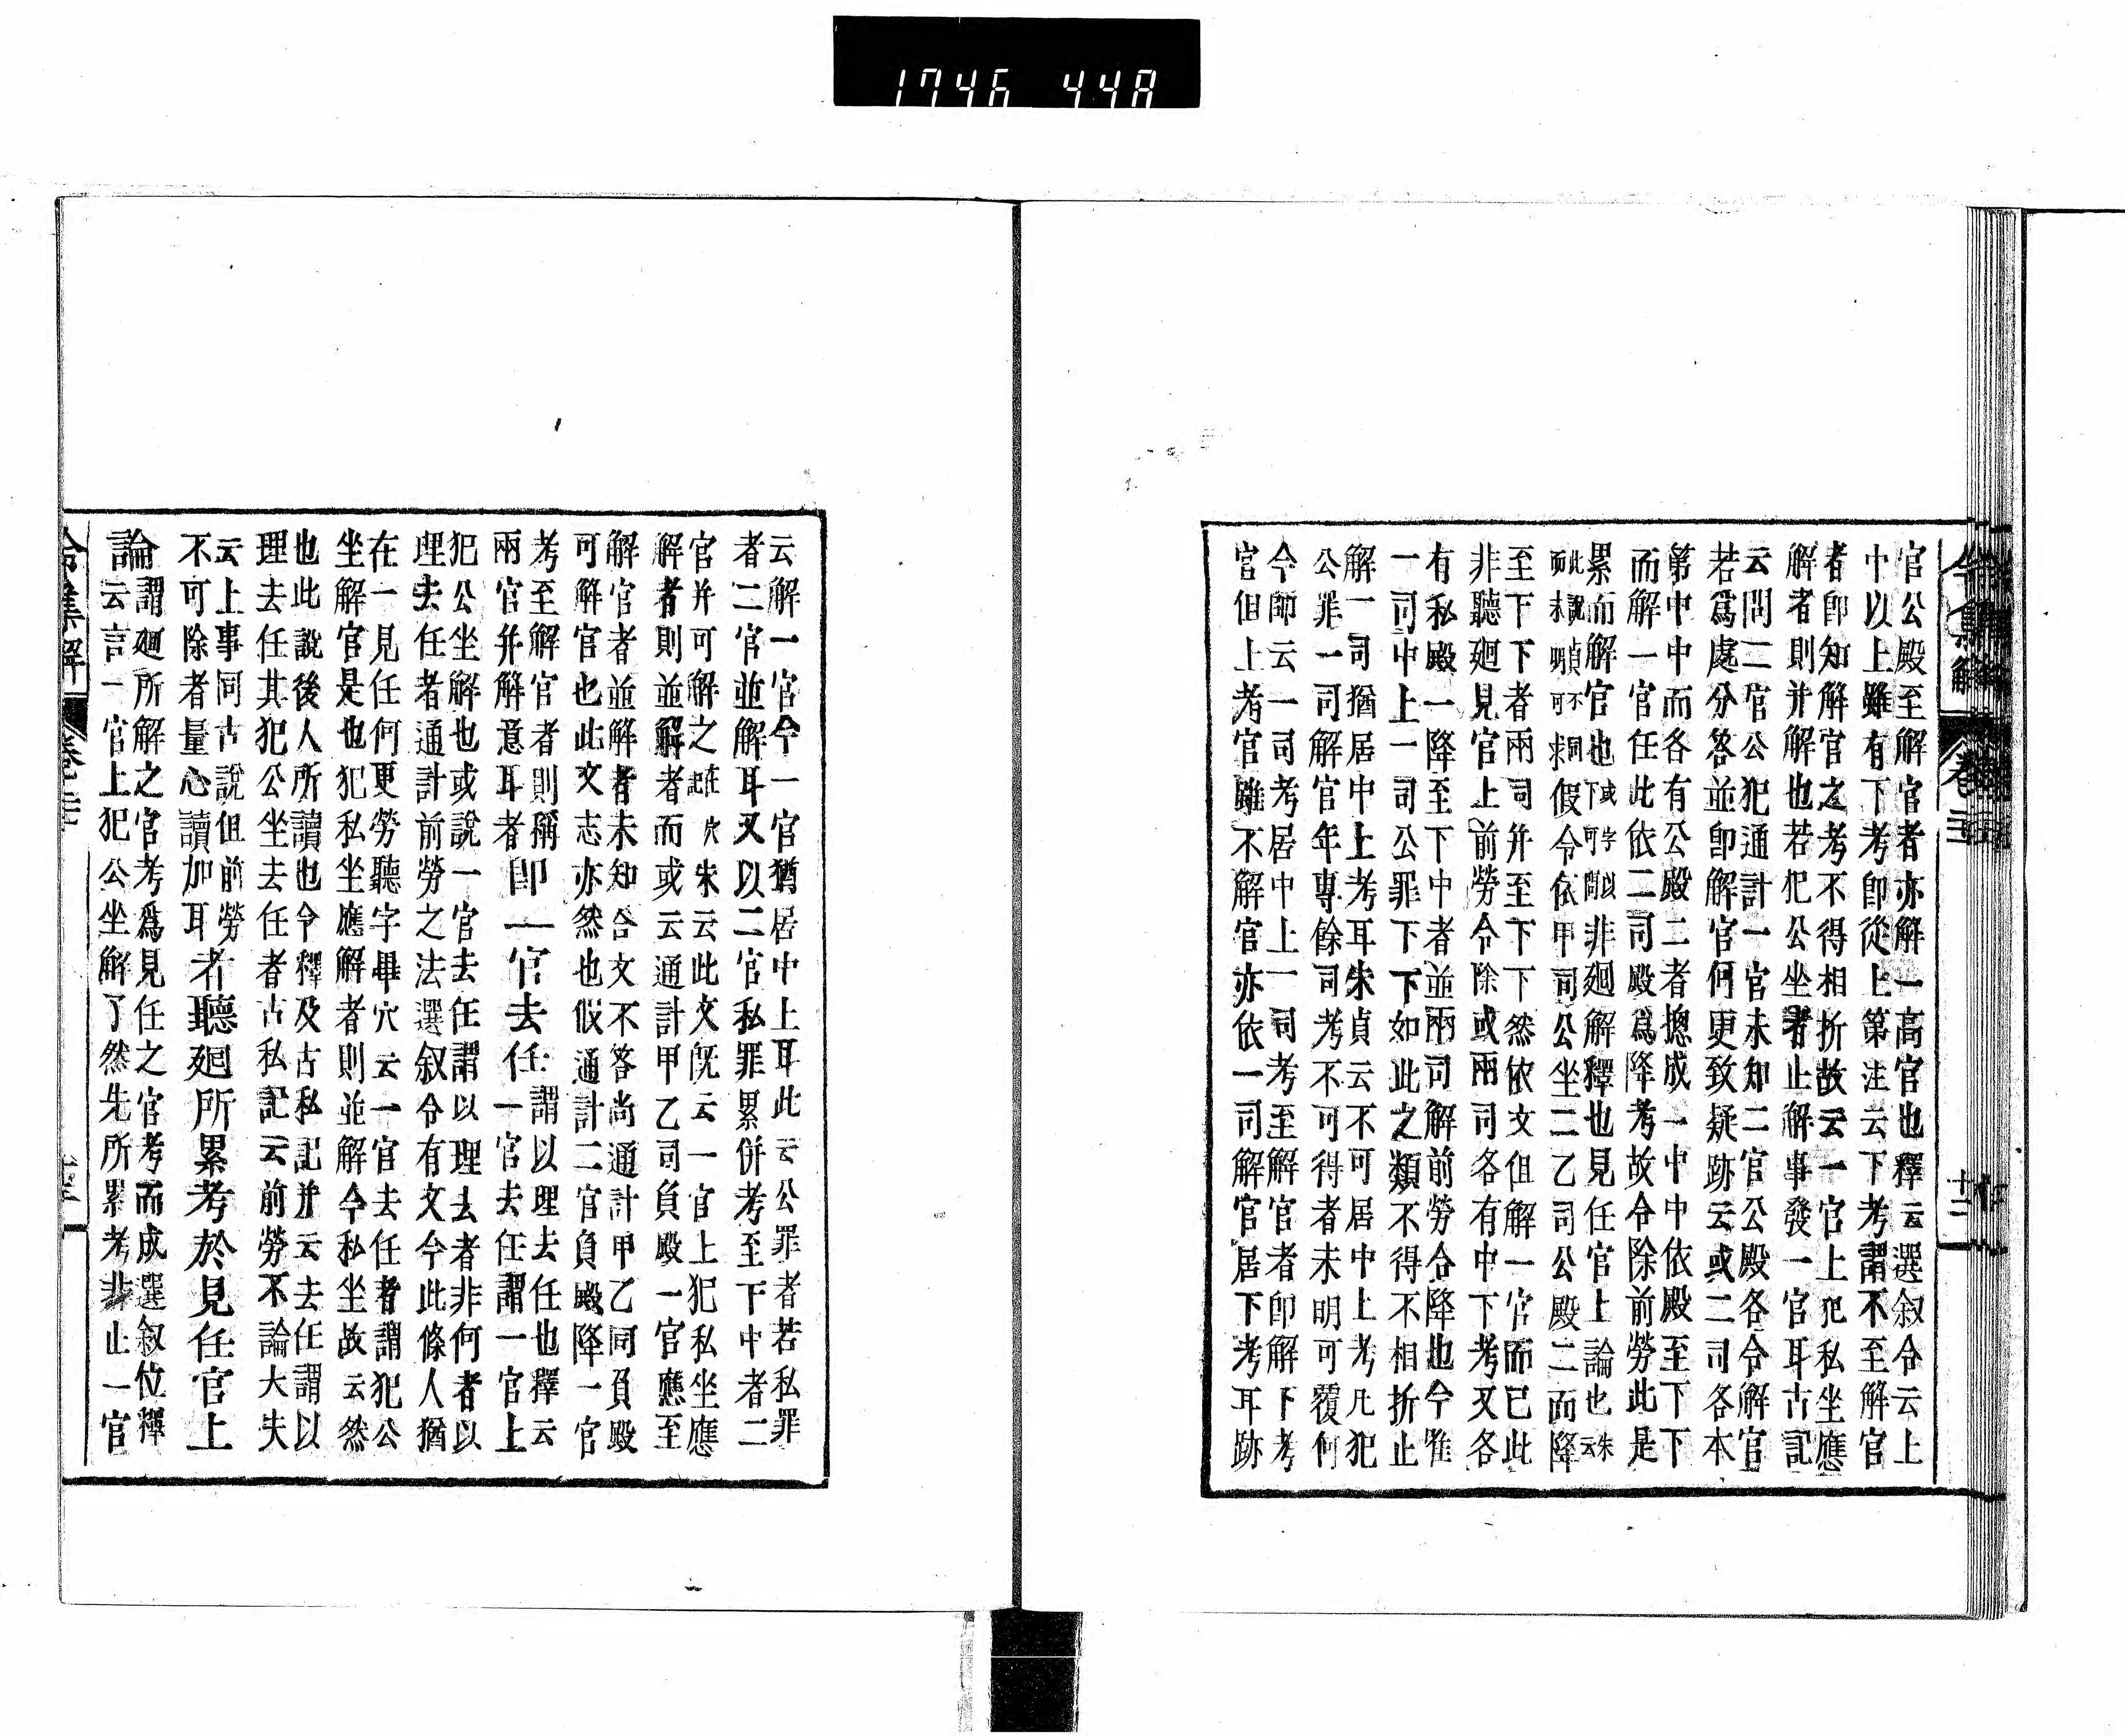 1746 448
令集解 卷二十二 十二
官公殿至解官者亦解一高官也釋云選叙令云上
中以上雖有下考卽從上第注云下考謂不至解官
者卽知解官之考不得相折故云一官上犯私坐應
解者則并解也若犯公坐者止解事發一官耳古記
云問二官公犯通計一官未知二官公殿各令解官
若爲處分答並卽解官何更致疑跡云或二司各本
第中中而各有公殿二者揔成一中中依殿至下下
而解一官任此依二司殿爲降考故令除前勞此是
累而解官也或字以下可閇非廻解釋也見任官上論也朱云
此說貞不同而未明可求假令依甲司公坐二乙司公殿二而降
至下下者兩司并至下下然依文但解一官而已此
非聽廻見官上前勞令除或兩司各有中下考又各
有私殿一降至下中者並兩司解前勞合降也今唯
一司中上一司公罪下下如此之類不得不相折止
解一司猶居中上考耳朱貞云不可居中上考凡犯
公罪一司解官年專餘司考不可得者未明可覆何
今師云一司考居中上一司考至解官者卽解下考
官但上考官雖不解官亦依一司解官居下考耳跡
云解一官令一官猶居中上耳此云公罪者若私罪
者二官並解耳又以二官私罪累併考至下中者二
官并可解之在穴記朱云此文旣云一官上犯私坐應
解者則並解者而或云通計甲乙司負殿一官應至
解官者並解者未知合文不答尚通計甲乙同負殿
可解官也此文志亦然也假通計二官負殿降一官
考至解官者則稱
兩官并解意耳者卽一官去任謂以理去任也釋云
一官去任謂一官上
犯公坐解也或說一官去任謂以理去者非何者以
理去任者通計前勞之法選叙令有文今此條人猶
在一見任何更勞聽字畢穴云一官去任者謂犯公
坐解官是也犯私坐應解者則並解今私坐故云然
也此說後人所讀也令釋及古私記并云去任謂以
理去任其犯公坐去任者古私記云前勞不論大失
云上事同古說但前勞
不可除者量心讀加耳者聽廻所累考於見任官上
論謂廻所解之官考爲見任之官考而成選叙位釋
云言一官上犯公坐解了然先所累考非止一官
令集解 卷二十二